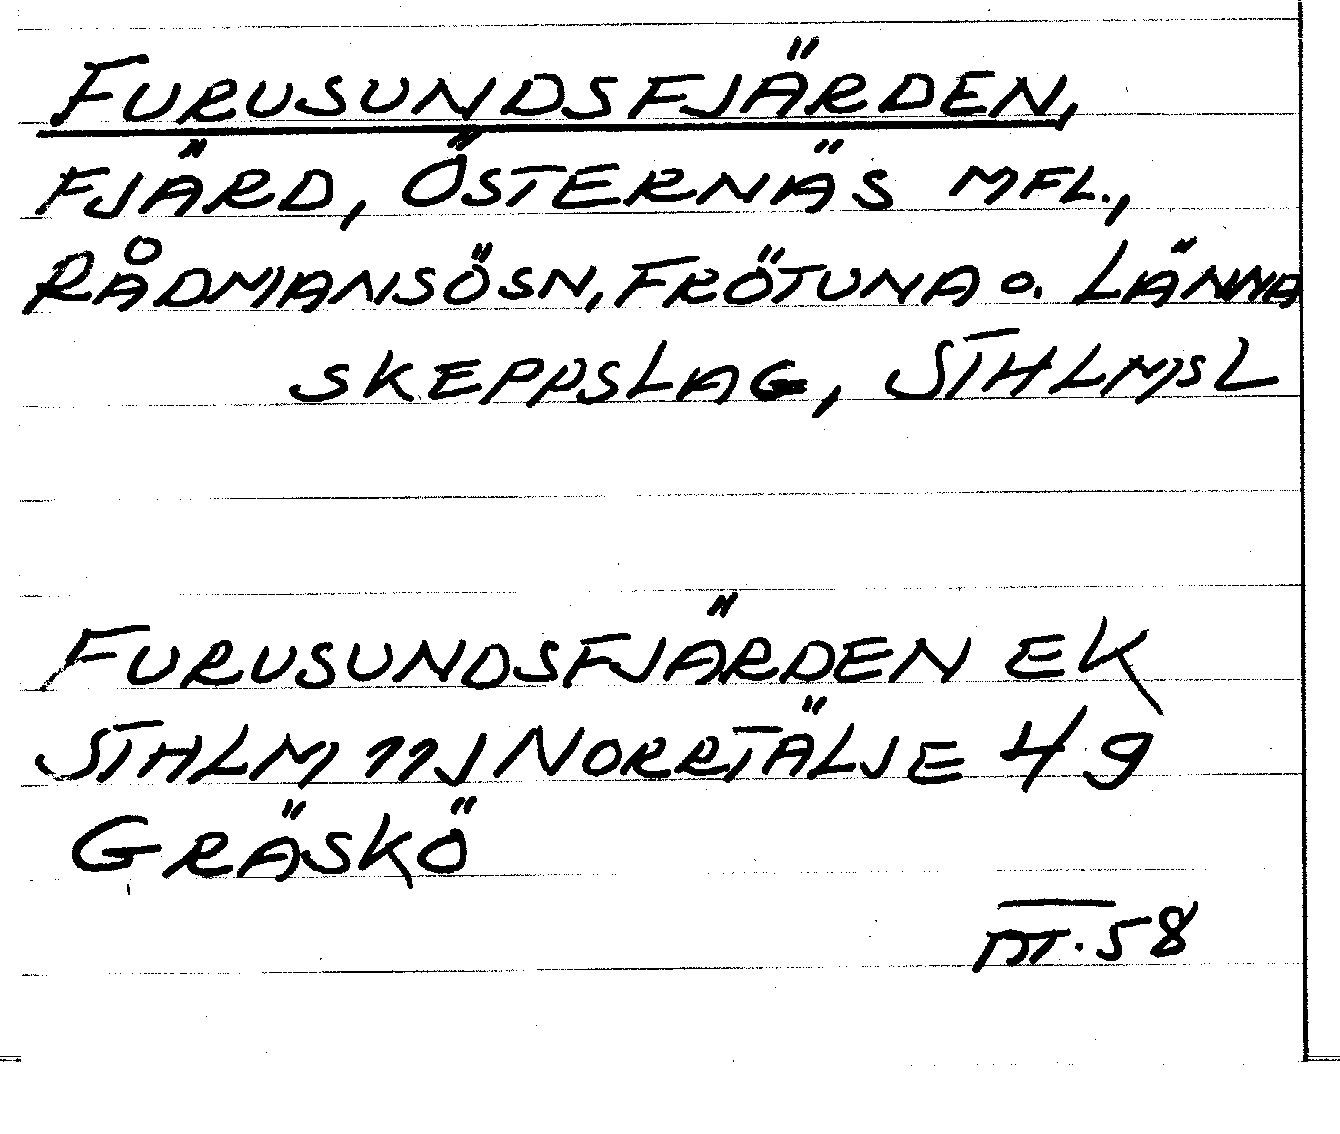 FURUSUNDSFJÄRDEN,
FJÄRD, ÖSTERNÄS MFL.,
RÅDMANSÖSN, FRÖTUNA O. LÄNNA
SKEPPSLAG, STHLMSL
FURUSUNDSFJÄRDEN EK
STHLM 11J NORRTÄLJE 49
GRÄSKÖ
58